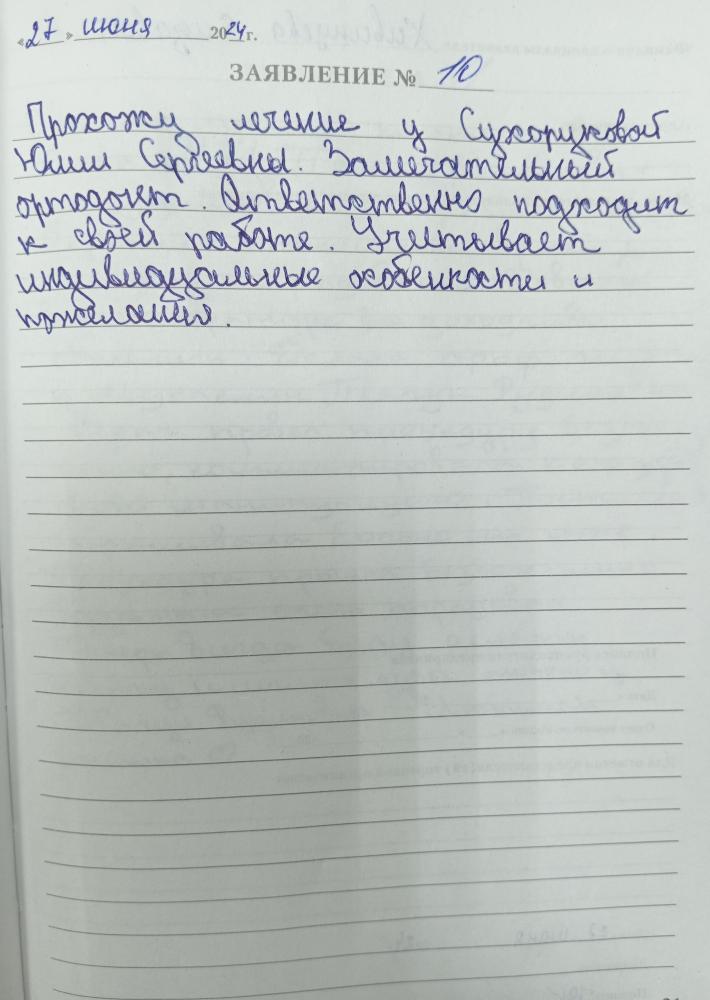 «27» июня 2024 г.
ЗАЯВЛЕНИЕ № 10
Прохожу лечение у Сухоруковой
Юлии Сергеевны. Замечательный
ортодонт. Ответственно подходит
к своей работе. Учитывает
индивидуальные особенности и
пожелания.